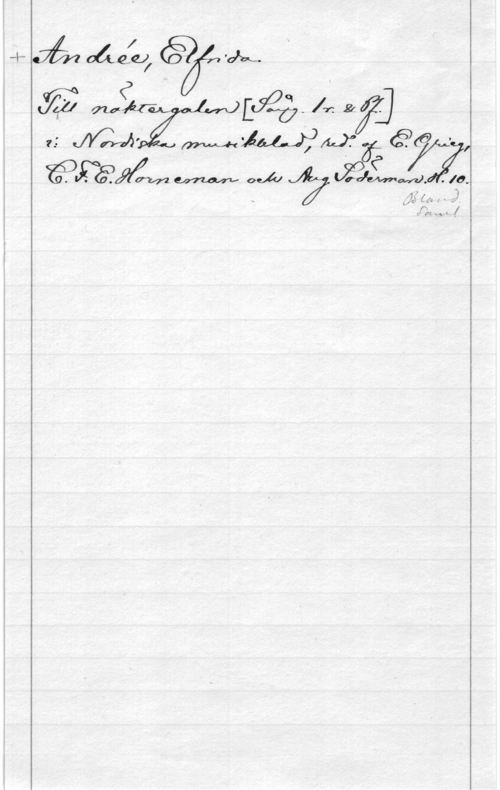 + Andrée, Elfrida.
Till näktergalen [Sång. 1 r. & Pf.]
i: Nordiska musikblad, red. af E. Grieg,
C. F. E. Horneman och Aug Söderman. H. 10.
Bland.
Saml